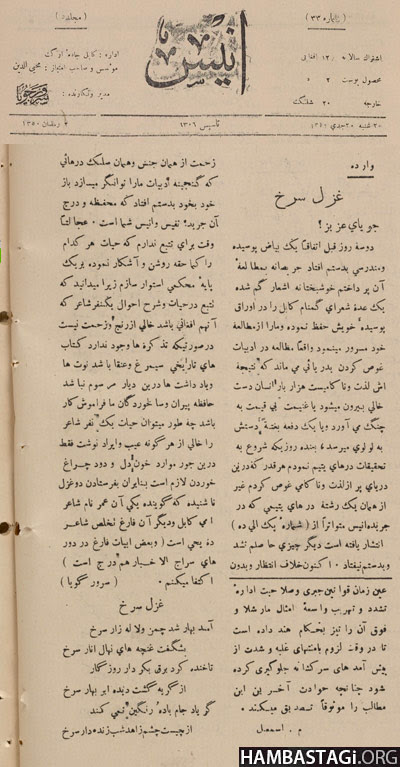 (شماره ۳۳)
(مجلد ۵)
انیس
اشتراک سالانه ۱۲ افغانی
محصول پوست ۲ »
خارجه ۲۰ شلنگ
اداره: کابل جاده ارگ
موسس و صاحب امتیاز: محیی الدین
مدیر و نگارنده: سرور جویا
۲۰ جدی
تاسیس ۱۳۰۶
رمضان ۱۳۵۰
وارده
غزل سرخ
جویای عزیز؟
دوسه روز قبل اتفاقاً یک بیاض پوسیده
ومندرسی بدستم افتاد حریصانه بمطالعهٔ
آن پرداختم خوشبختانه اشعار گم شده
یک عدهٔ شعرای گمنام کابل را در اوراق
پوسیدهٔ خویش حفظ نموده ومارا از مطالعهٔ
خود مسرور مینمود واقعاً مطالعه در ادبیات
غوص کردن بدریائی می ماند که نتیجهٔ
اش لذت ونا کامیست هزار بار انسان دست
خالی بیرون میشود یا غنیمت بی قیمت به
چنگ می آورد ویا یک دفعه بغتةً دستش
به لولوی میرسد، بنده روزیکه شروع به
تحقیقات درهای یتیم نمودم هر قدر که درین
دریای پر از لذت ونا کامی غوص کردم غیر
از همان یک رشتهٔ درهای یتیمی که در
جریدهٔ انیس متواتراً از (شماره یک الی ده)
انتشار یافته است دیگر چیزی حاصلم نشد
وبدستم نیفتاد. اکنون خلاف انتظار وبدون
عین زمان قوانین جبری وصلاحیت ادارهٔ
تشدد و تهریب واسعهٔ امثال مارشلا و
فوق آن را نیز بحکام هند داده است
تا در وقت لزوم بامنتهای غلبه و شدت از
پیش آمد های سرکشانه جلوگیری کرده
شود چنانچه حوادث آخرین این
مطالب را موثوقاً تصدیق میکند.
م. اسمعیل
زحمت از همان جنس وهمان سلک درهائی
که گنجینهٔ ادبیات مارا توانگر میسازد باز
خود بخود بدستم افتاد که محفظه و درج
آن جریدهٔ نفیس وانیس شما است. عجالتاً
وقت برای تتبع ندارم که حیات هر کدام
را کما حقه روشن و آشکار نموده بریک
پایهٔ محکمی استوار سازم زیرا میدانید که
تتبع در حیات وشرح احوال یکنفر شاعر که
آنهم افغانی باشد خالی از رنج وزحمت نیست
درصورتیکه تذکره ها وجود ندارد کتاب
های تاریخی سیمرغ وعنقا باشد نوت ها
ویاد داشت ها درین دیار مرسوم نباشد
حافظه پیران وسالخوردگان ما فراموش کار
باشد چه طور میتوان حیات یک نفر شاعر
را خالی از هر گونه عیب وایراد نوشت فقط
درین جور موارد خون دل و دود چراغ
خوردن لازم است بنابران بفرستادن دوغزل
ناشنیده که گوینده یکی آن عمر نام شاعر
امی کابل ودیگر آن فارغ تخلص شاعر
ده یحیی است (وبعض ابیات فارغ در دور
های سراج الاخبار هم درج است)
اکتفا میکنم. (سرور گویا)
غزل سرخ
آمد بهار شد چمن ولاله زار سرخ
بشگفت غنچه های نهال انار سرخ
تاخنده کرد برق بکردار روزگار
از گریه گشت دیده ابر بهار سرخ
گر یاد جام باده رنگین نمی کند
از چیست چشم زاهد شب زنده دار سرخ
HAMBASTAGI.ORG